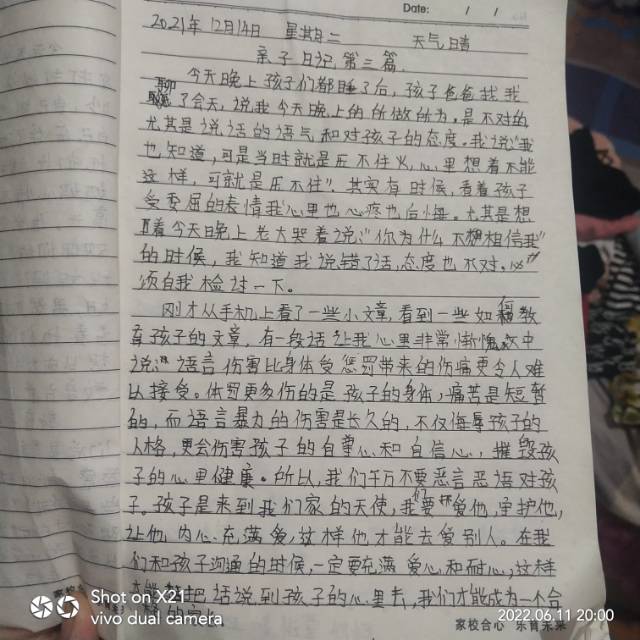 Date: / /
2021年12月14日 星期二 天气晴
亲子日记第三篇
今天晚上孩子们都睡了后,孩子爸爸找我
聊了会天,说我今天晚上的所做所为,是不对的
尤其是说话的语气和对孩子的态度。我说"我
也知道,可是当时就是压不住火,心里想着不能
这样,可就是压不住"。其实有时候,看着孩子
受委屈的表情我心里也心疼也后悔。尤其是想
着今天晚上老大哭着说:"你为什么不想相信我"
的时候,我知道我说错了话,态度也不对。必
须自我检讨一下。
刚才从手机上看了一些小文章,看到一些如何教
育孩子的文章,有一段话让我心里非常惭愧,文中
说:"语言伤害比身体受惩罚带来的伤痛更令人难
以接受。体罚更多伤的是孩子的身体,痛苦是短暂
的,而语言暴力的伤害是长久的,不仅侮辱孩子的
人格,更会伤害孩子的自尊心和自信心,摧毁孩
子的心里健康。所以,我们千万不要恶言恶语对孩
子。孩子是来到我们家的天使,我们要爱他,呵护他,
让他内心充满爱,这样他才能去爱别人。在我
们和孩子沟通的时候,一定要充满爱心和耐心,这样
才能把话说到孩子的心里去,我们才能成为一个合
家校合心 乐育未来
Shot on X21
vivo dual camera
2022.06.11 20:00